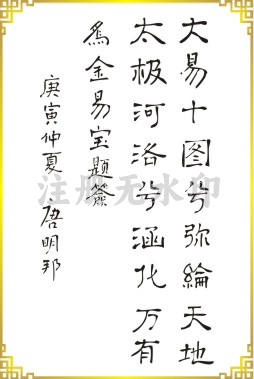 大易十图兮弥綸天地
太极河洛兮涵化万有
為金易宝题簽
庚寅仲夏 唐明邦
注册无水印